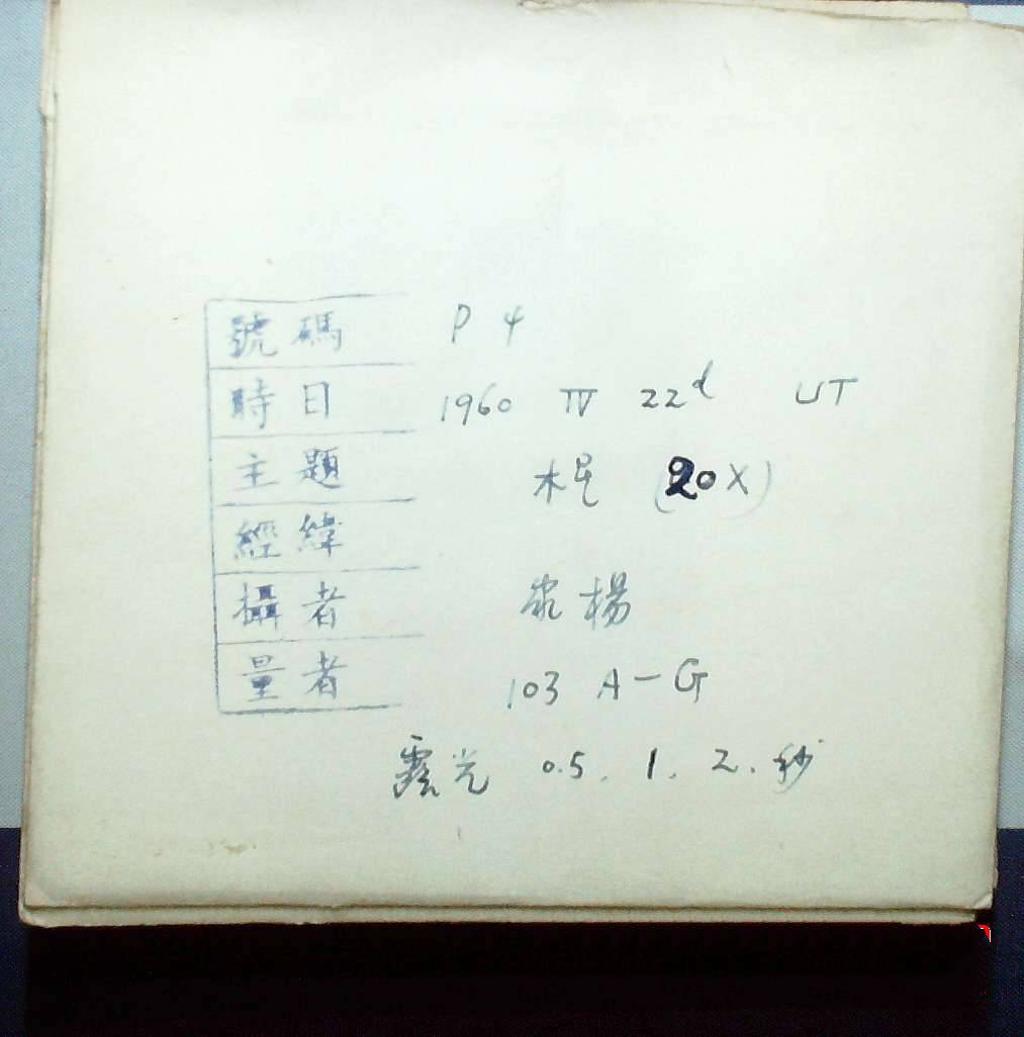 號碼 P 4
時日 1960 IV 22d UT
主題 木星 (20X)
經緯
攝者 楊
量者 103 A-G
露光 0.5. 1. 2. 秒